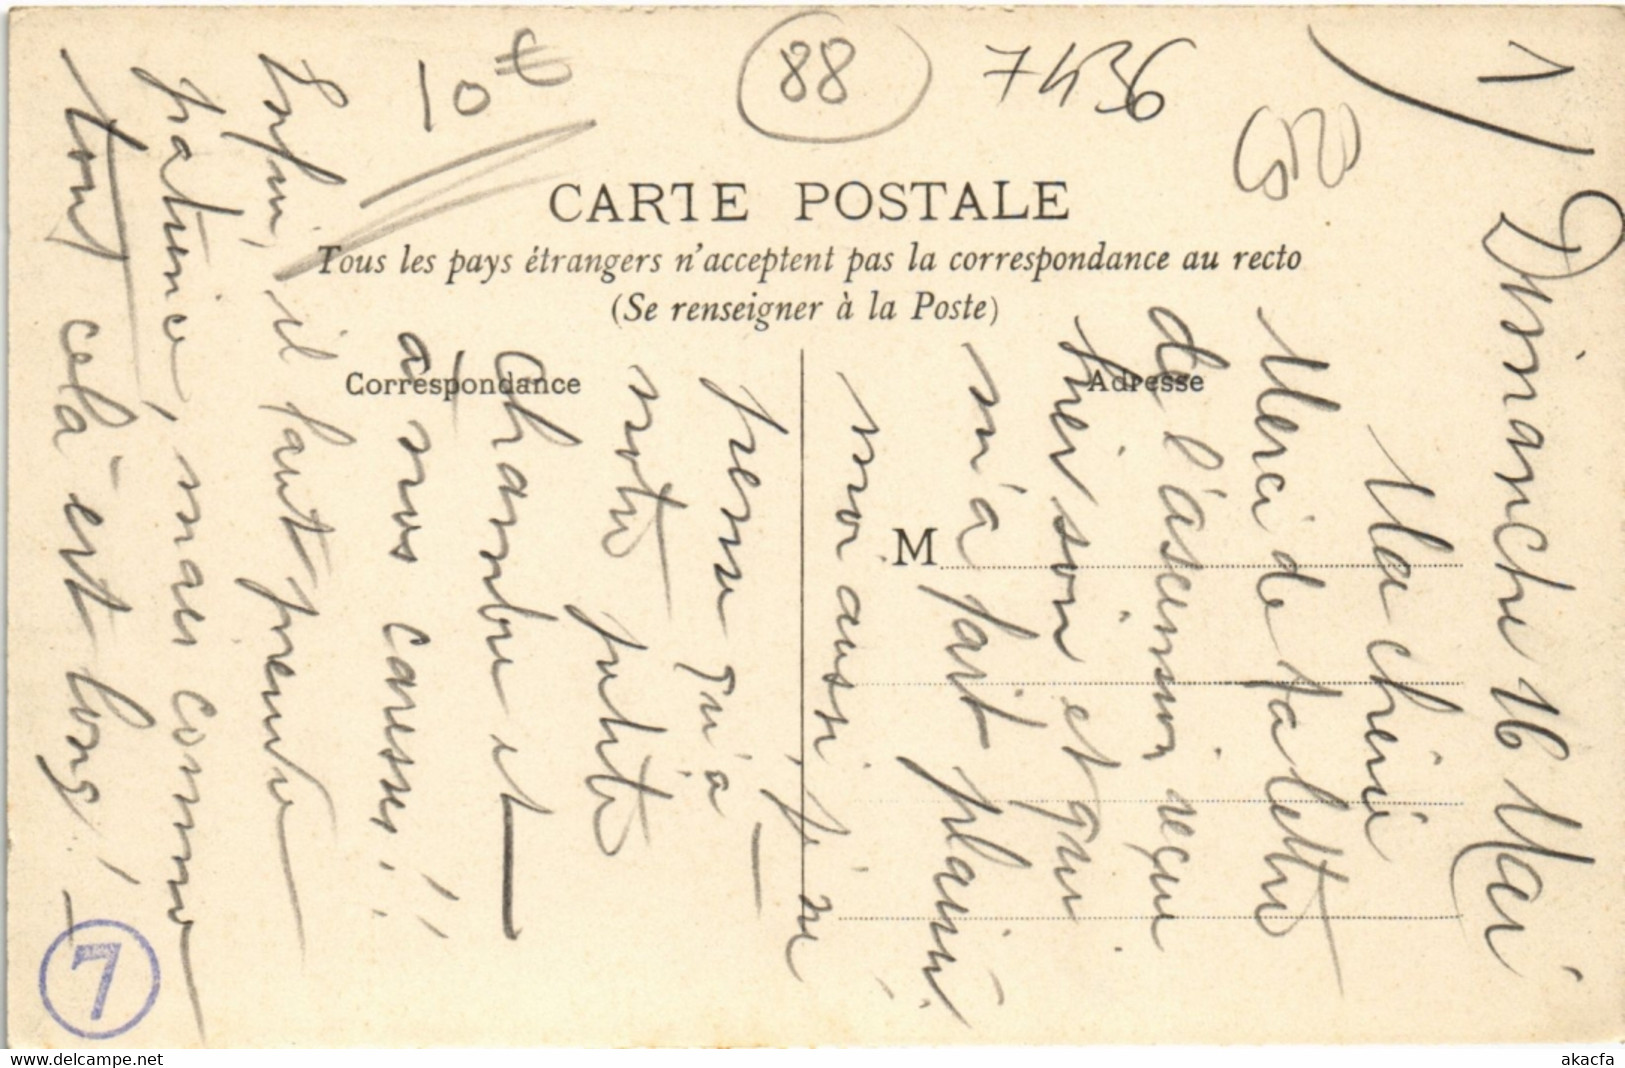 88
7436
25
10
1/
CARTE POSTALE
Tous les pays étrangers n'acceptent pas la correspondance au recto
(Se renseigner à la Poste)
Correspondance
Adresse
M
Dimanche 16 Mai
Ma chérie
Merci de ta lettre
de l'ascension reçue
hier soir et qui
m'a fait plaisir.
moi aussi, je ne
pense qu'à
notre petite
chambre et
à nos caresses!!
Enfin, il faut prendre
patience, mais comme
tout cela est long!
7
delcampe.net
akacfa